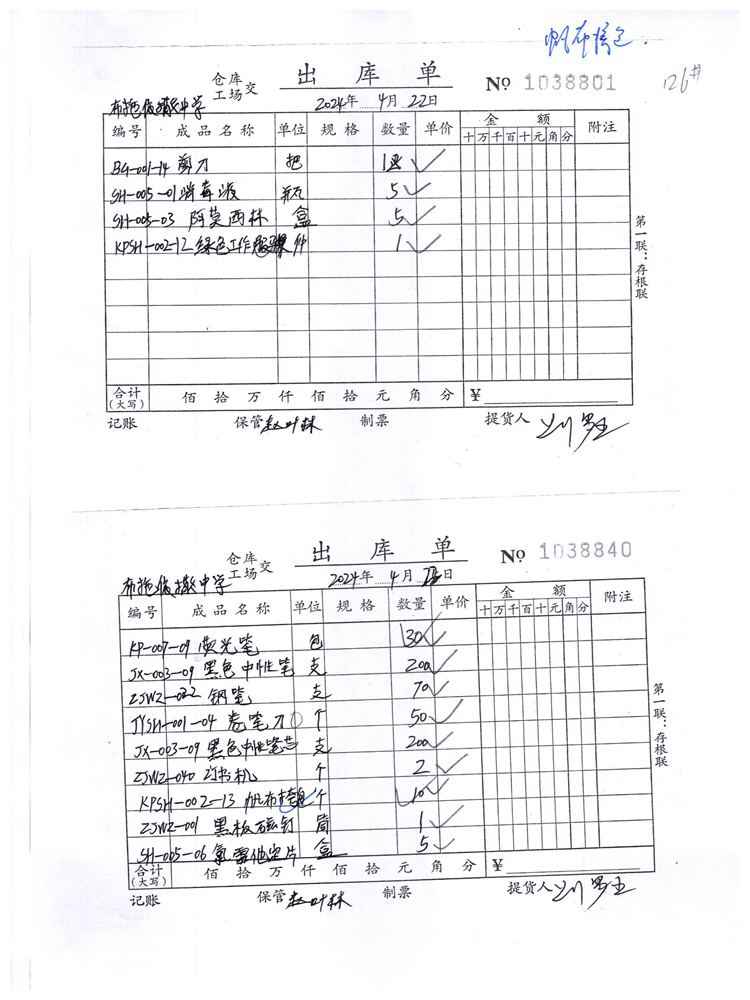 帆布
126#
仓库
工场 交 出库单 No 1038801
布拖依撒中学 2024年 4月 22日
编号 成品名称 单位 规格 数量 单价 金额 附注
十万千百十元角分
BG-001-14 剪刀 把
SH-005-01 消毒液 瓶 5
SH-005-03 阿莫西林 盒 5
KPSH-002-12 绿色工作服 件 1
第一联：存根联
合计(大写) 佰拾万仟佰拾元角分 ¥
记账 保管 赵叶林 制票 提货人
仓库
工场 交 出库单 No 1038840
布拖依撒中学 2024年 4月 日
编号 成品名称 单位 规格 数量 单价 金额 附注
十万千百十元角分
KP-007-09 荧光笔 包 30
JX-003-09 黑色中性笔 支 200
ZJWZ-032 钢笔 支 70
JYSH-001-04 卷笔刀 个 50
JX-003-09 黑色中性笔芯 支 200
ZJWZ-040 订书机 个 2
KPSH-002-13 帆布 个 10
ZJWZ-001 黑板磁钉 筒 1
SH-005-06 氯雷他定片 盒 5
第一联：存根联
合计(大写) 佰拾万仟佰拾元角分 ¥
记账 保管 赵叶林 制票 提货人